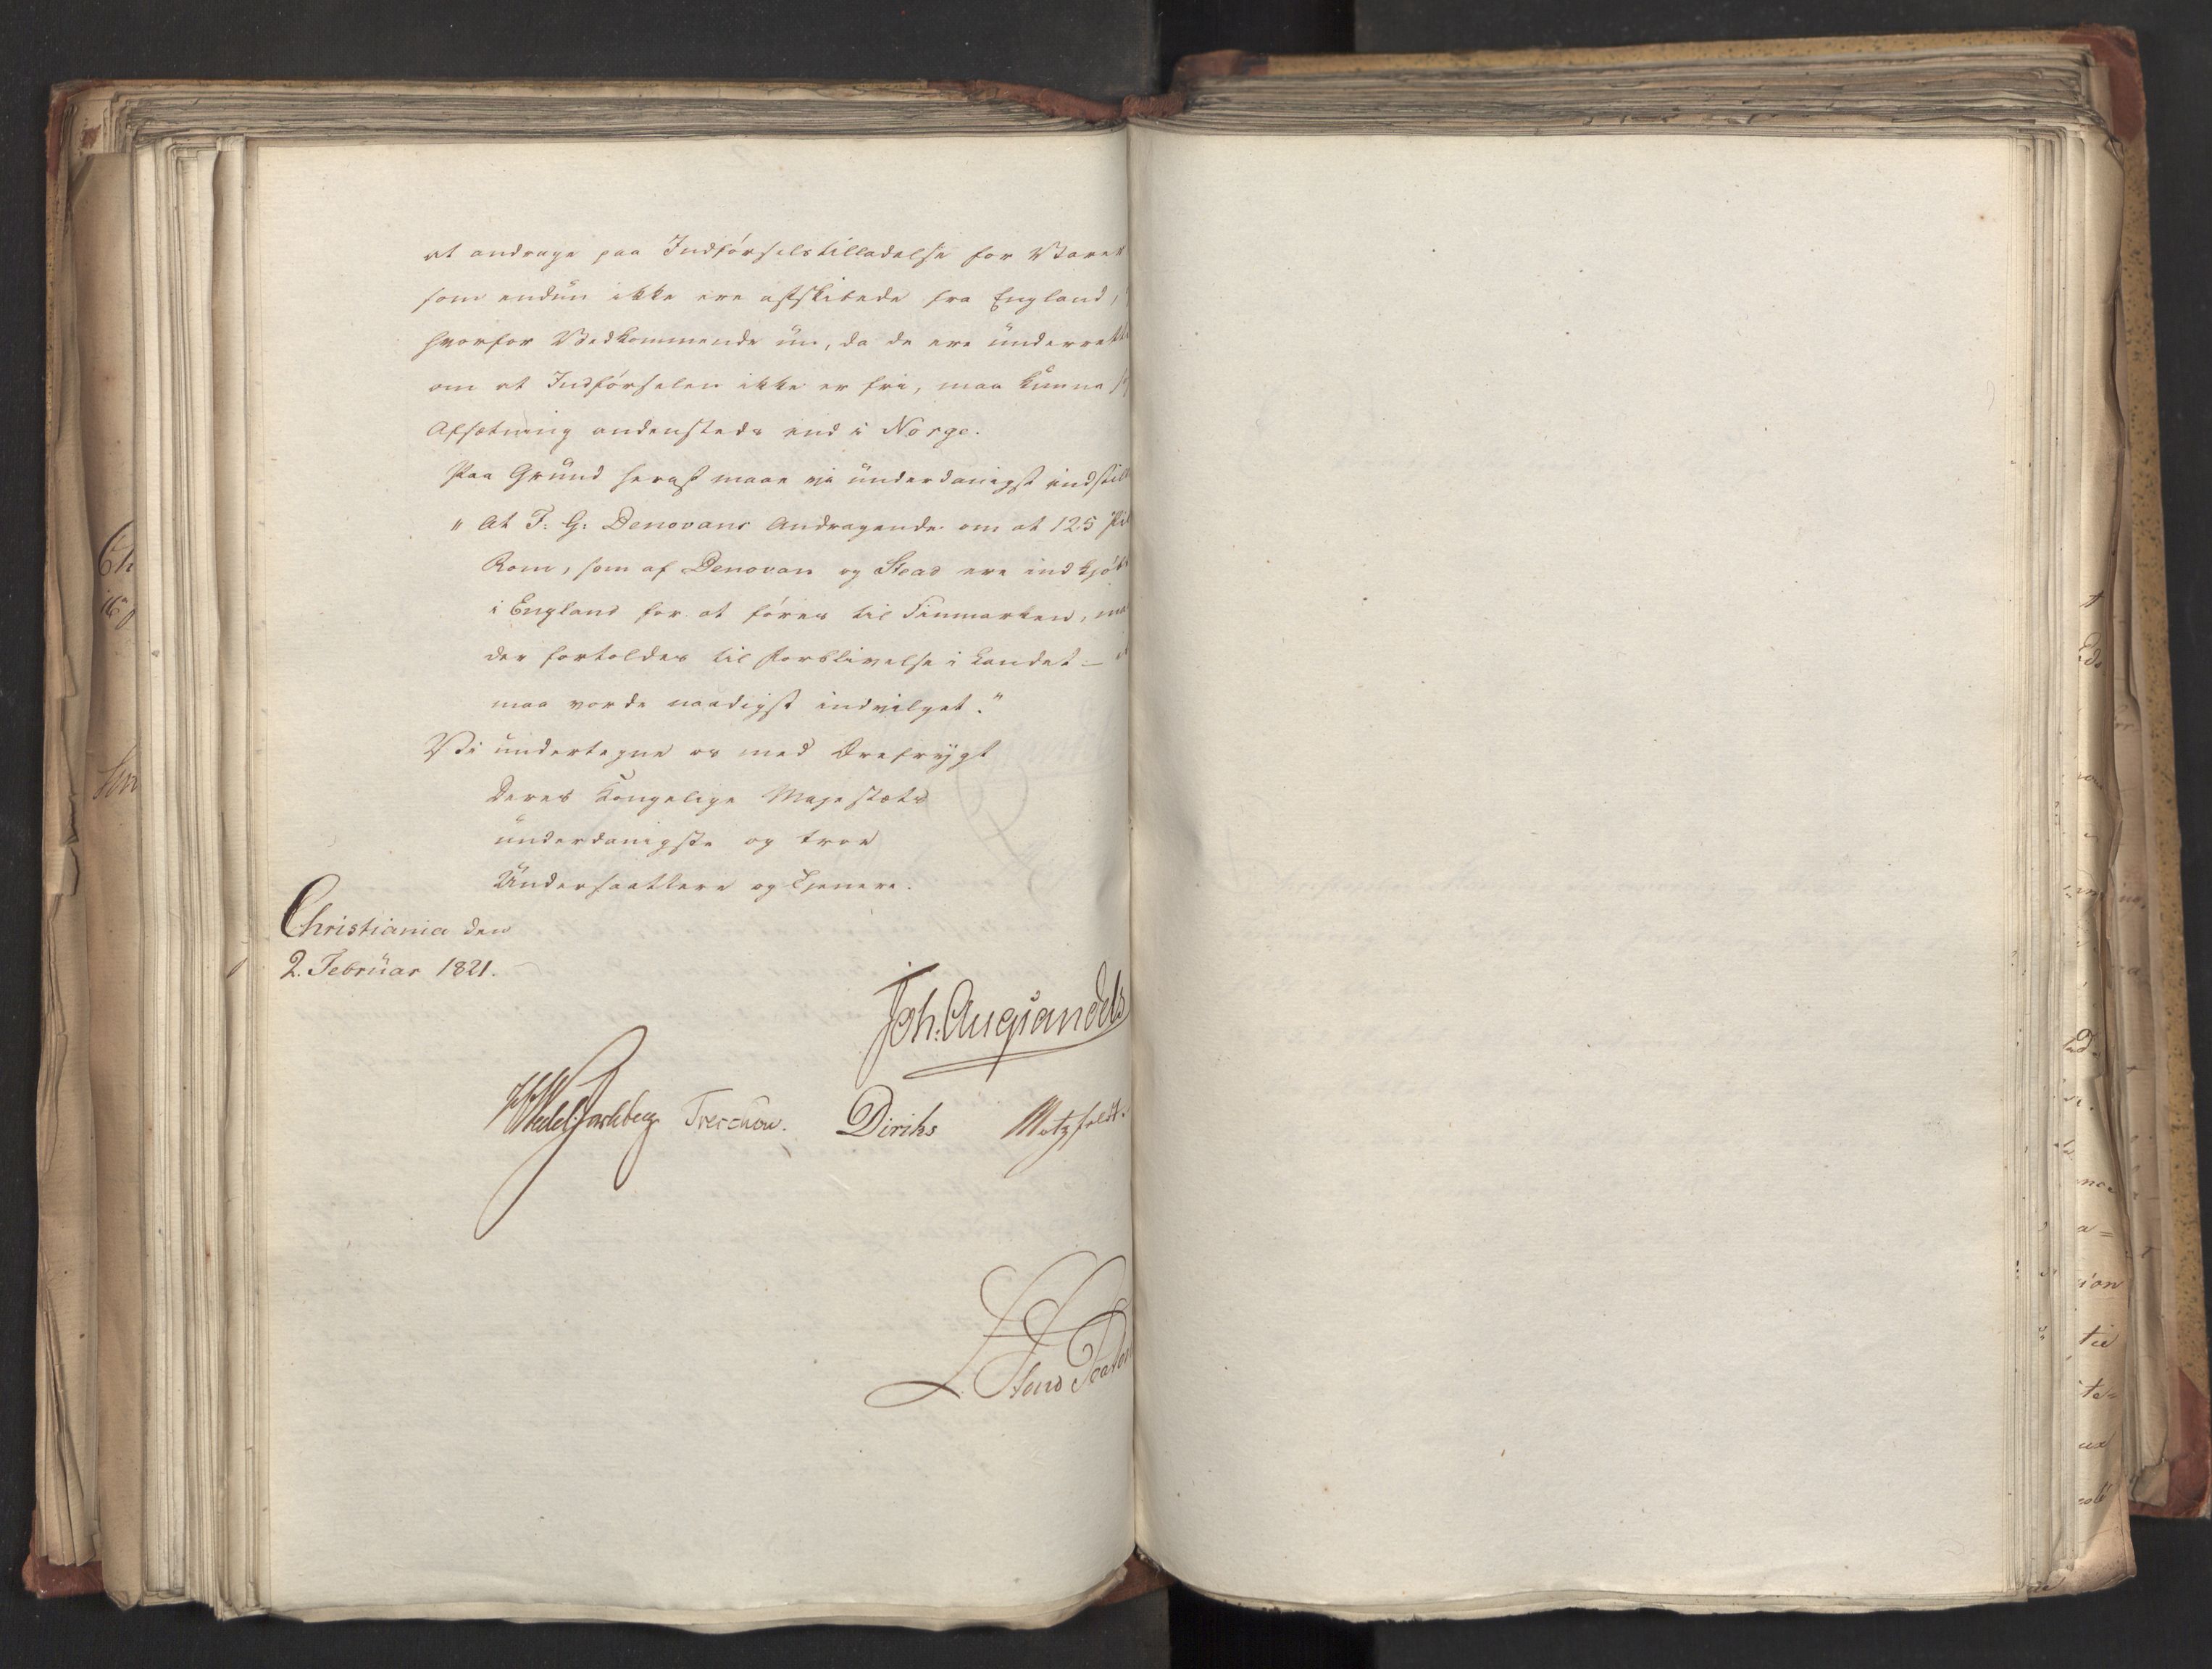 at andrage paa Indførselstilladelse for Varer
som endnu ikke ere afskibede fra England,
hvorfor Vedkommende nu, da de ere underrettede
om at Indførselen ikke er fri, maa kunne
Afsætning andensteds end i Norge.
Paa Grund heraf maae vi underdanigst indstille
" At F: G: Denovans Andragende om at 125
Rom, som af Denovan og Stead ere indkjøbt
i England for at føres til Finmarken, maa
der fortoldes til Forblivelse i Landet –
maa vorde naadigst indvilget."
Vi undertegne os med Ærefrygt
Deres Kongelige Majestæts
underdanigste og troe
Undersaattere og Tjenere.
Christiania den
2. Februar 1821.
Joh: Aug: Sandels
HWedelJarlsberg Treschow. Diriks Motzfeldt.